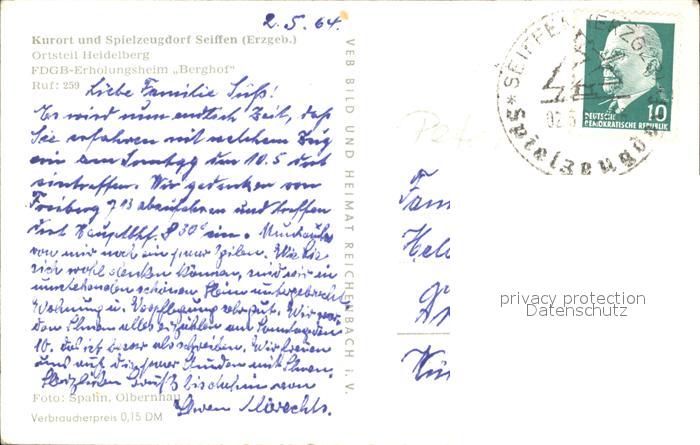 2.5.64.
Kurort und Spielzeugdorf Seiffen (Erzgeb.)
Ortsteil Heidelberg
FDGB-Erholungsheim „Berghof"
Ruf: 259
Liebe Familie Süß!
Es wird nun endlich Zeit, daß
Sie erfahren mit welchem Zug
wir am Sonntag den 10.5 dort
eintreffen. Wir gedenken von
Freiberg 7 13 abzufahren und treffen
dort Hauptbhf. 8 30 ein. Nun auch
von mir noch ein paar Zeilen. Wie Sie
sich wohl denken können, sind wir in
schönen Heim untergebracht
Wohnung u. Verpflegung sehr gut. Wir werden
Ihnen alles erzählen am Sonntag den
10. das ist besser als schreiben. Wir freuen
uns auf die paar Stunden mit Ihnen.
Herzlichen Gruß bis dahin von
Foto: Spahn, Olbernhau
Verbraucherpreis 0,15 DM
VEB BILD UND HEIMAT REICHENBACH i. V.
SEIFFEN (ERZGEB)
Spielzeugdorf
DEUTSCHE
DEMOKRATISCHE REPUBLIK
10
Fam
privacy protection
Datenschutz